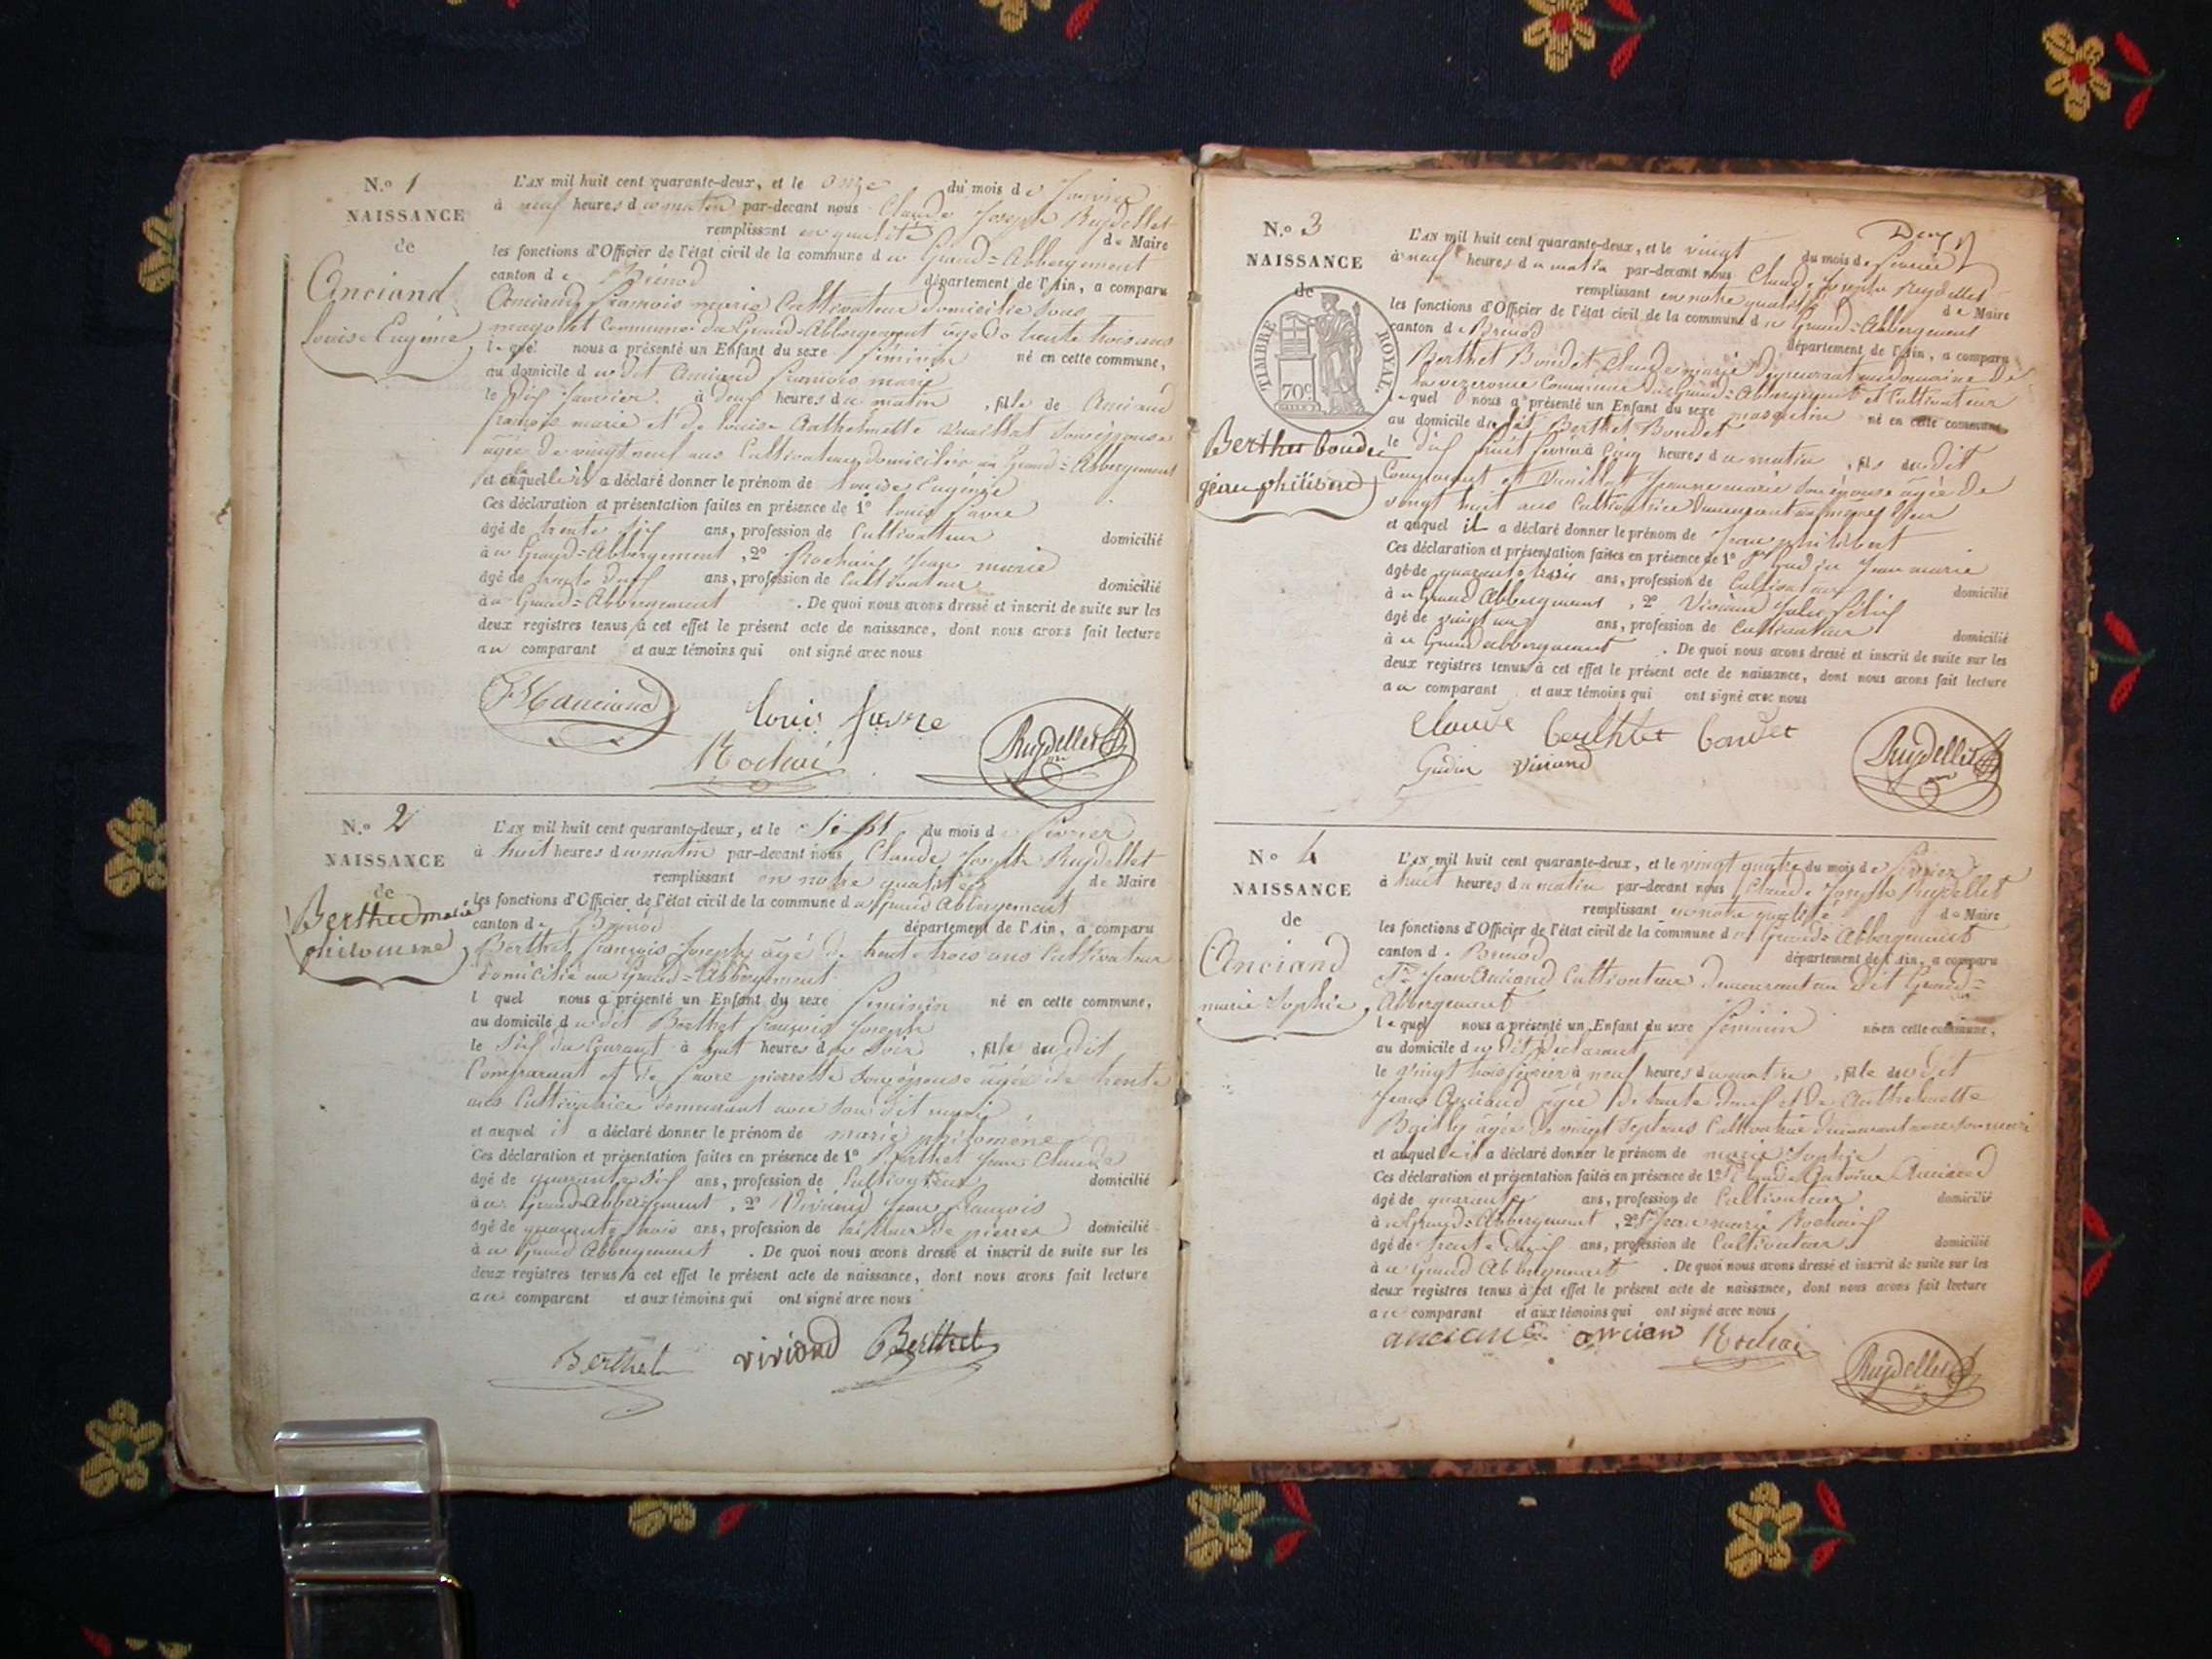 N.º 1
NAISSANCE
de
Anciand
louise Eugénie
L'AN mil huit cent quarante-deux, et le onze du mois de Janvier
à neuf heures du matin par-devant nous Claude Joseph Ruydellet
remplissant en qualité de Maire
les fonctions d'Officier de l'état civil de la commune du Grand=Abbergement
canton de Brénod département de l'Ain, a comparu
Anciand françois marie Cultivateur domicilié sous
commune du Grand=Abbergement âgé de trente trois ans
lequel nous a présenté un Enfant du sexe féminin né en cette commune,
au domicile du dit Anciand françois marie
le dix Janvier à deux heures du matin , fille de Anciand
françois marie et de louise Anthelmette Vuaillat son épouse
âgée de vingt neuf ans Cultivateurs domiciliés au Grand=Abbergement
et a déclaré donner le prénom de louise Eugénie
Ces déclaration et présentation faites en présence de 1º louis favre
âgé de trente six ans, profession de Cultivateur domicilié
au Grand=Abbergement , 2º Rochaix Jean marie
âgé de trente deux ans, profession de Cultivateur domicilié
au Grand=Abbergement . De quoi nous avons dressé et inscrit de suite sur les
deux registres tenus à cet effet le présent acte de naissance, dont nous avons fait lecture
au comparant et aux témoins qui ont signé avec nous
anciand louis favre
Rochai Ruydellet
N.º 2
NAISSANCE
de
Berthet marie
philomene
L'AN mil huit cent quarante-deux, et le sept du mois de février
à huit heures du matin par-devant nous Claude Joseph Ruydellet
remplissant en notre qualité de Maire
les fonctions d'Officier de l'état civil de la commune du Grand Abbergement
canton de Brénod département de l'Ain, a comparu
Berthet françois Joseph âgé de trente trois ans Cultivateur
domicilié au Grand=Abbergement
l quel nous a présenté un Enfant du sexe féminin né en cette commune,
au domicile du dit Berthet françois Joseph
le six du Courant à huit heures du soir , fille du dit
Comparant et de favre pierrette son épouse âgée de trente
ans Cultivatrice demeurant avec son dit mari
et auquel il a déclaré donner le prénom de marie philomène
Ces déclaration et présentation faites en présence de 1º Berthet Jean Claude
âgé de quarante six ans, profession de Cultivateur domicilié
au Grand=Abbergement , 2º Viviand Jean françois
âgé de quarante trois ans, profession de tailleur de pierres domicilié
au Grand Abbergement . De quoi nous avons dressé et inscrit de suite sur les
deux registres tenus à cet effet le présent acte de naissance, dont nous avons fait lecture
au comparant et aux témoins qui ont signé avec nous
Berthet viviand Berthet
Deux
N.º 3
NAISSANCE
de
TIMBRE ROYAL.
70c
Berthet boudet
jean philibert
L'AN mil huit cent quarante-deux, et le vingt du mois de février
à neuf heures du matin par-devant nous Claude Joseph Ruydellet
remplissant en notre qualité de Maire
les fonctions d'Officier de l'état civil de la commune du Grand=Abbergement
canton de Brénod département de l'Ain, a comparu
Berthet Boudet Claude marie demeurant au domaine de
la vezeronce Commune du Grand=Abbergement et Cultivateur
lequel nous a présenté un Enfant du sexe masculin né en cette commune
au domicile du dit Berthet Boudet
le dix huit février à Cinq heures du matin , fils du dit
Comparant et Vuaillat Jeanne marie son épouse âgée de
vingt huit ans Cultivatrice demeurant au même lieu
et auquel il a déclaré donner le prénom de Jean philibert
Ces déclaration et présentation faites en présence de 1º Gudin Jean marie
âgé de quarante trois ans, profession de Cultivateur domicilié
au Grand Abbergement , 2º Viviand
âgé de vingt un ans, profession de Cultivateur domicilié
au Grand abbergement . De quoi nous avons dressé et inscrit de suite sur les
deux registres tenus à cet effet le présent acte de naissance, dont nous avons fait lecture
au comparant et aux témoins qui ont signé avec nous
claude berthet boudet
Gudin viviand Ruydellet
N.º 4
NAISSANCE
de
Anciand
marie Sophie
L'AN mil huit cent quarante-deux, et le vingt quatre du mois de février
à huit heures du matin par-devant nous Claude Joseph Ruydellet
remplissant en notre qualité de Maire
les fonctions d'Officier de l'état civil de la commune du Grand=Abbergement
canton de Brénod département de l'Ain, a comparu
Jean Anciand Cultivateur demeurant au dit Grand=
Abbergement
lequel nous a présenté un Enfant du sexe féminin né en cette commune,
au domicile du dit Déclarant
le vingt trois février à neuf heures du matin , fille du dit
Jean Anciand âgé de trente deux et de Anthelmette
Bailly âgée de vingt sept ans Cultivatrice demeurant avec son mari
et auquel il a déclaré donner le prénom de marie Sophie
Ces déclaration et présentation faites en présence de 1º Claude Antoine Anciand
âgé de quarante ans, profession de Cultivateur domicilié
au Grand=Abbergement , 2º Jean marie Rochaix
âgé de trente deux ans, profession de Cultivateur domicilié
au Grand Abbergement . De quoi nous avons dressé et inscrit de suite sur les
deux registres tenus à cet effet le présent acte de naissance, dont nous avons fait lecture
au comparant et aux témoins qui ont signé avec nous
anciand ancian Rochai
Ruydellet